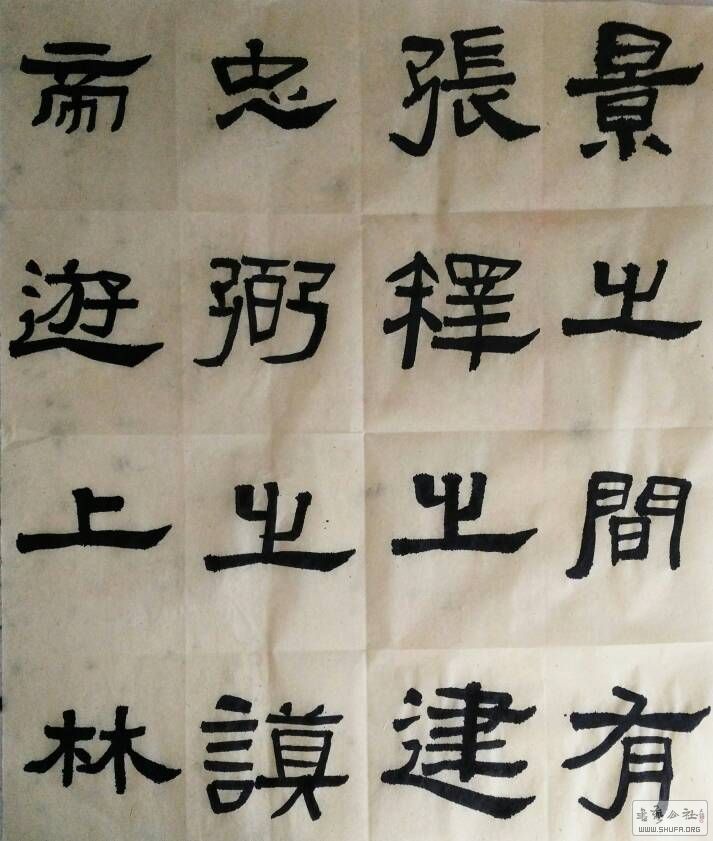 景之間有
張釋之建
忠弼之謨
帝遊上林
WWW.SHUFA.ORG